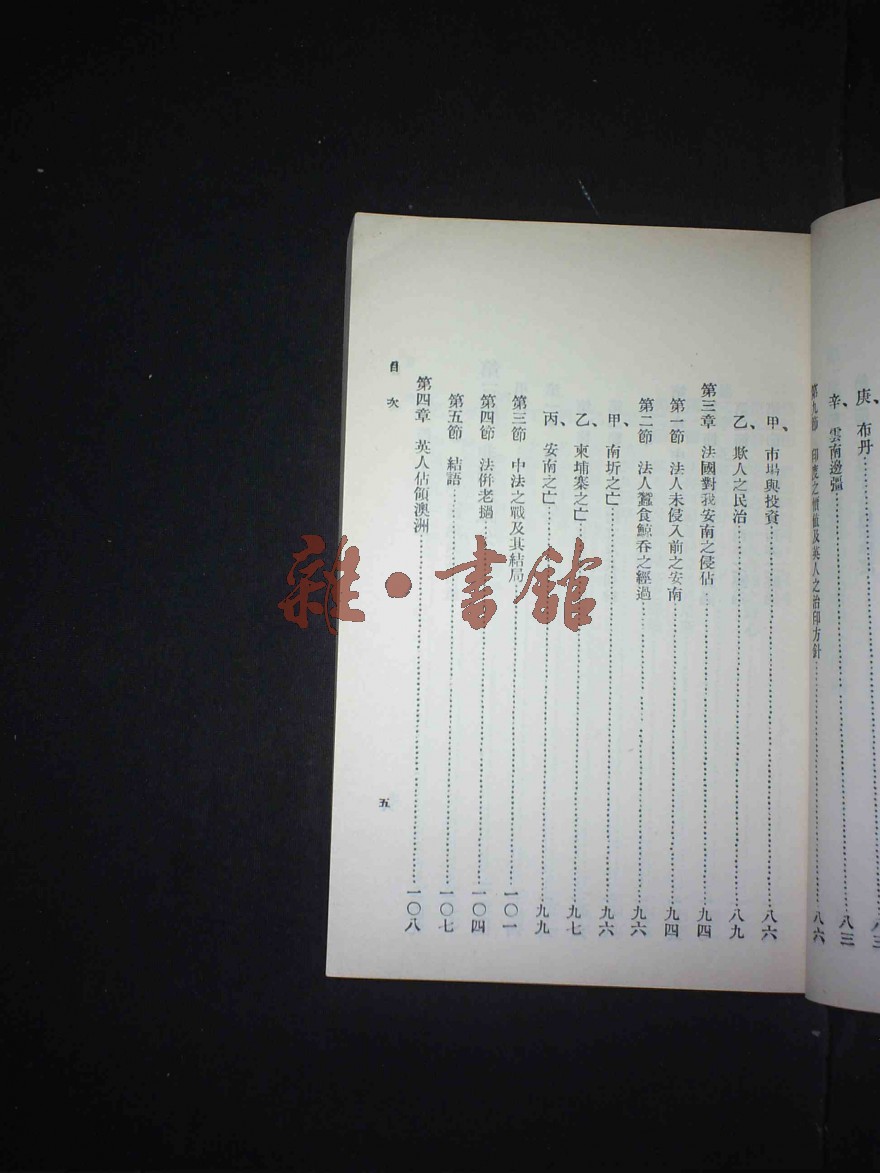 庚、布丹……八三
辛、雲南邊疆……八三
第九節 印度之價值及英人之治印方針……八六
甲、市場與投資……八六
乙、欺人之民治……八九
第三章 法國對我安南之侵佔……九四
第一節 法人未侵入前之安南……九四
第二節 法人蠶食鯨吞之經過……九六
甲、南圻之亡……九六
乙、柬埔寨之亡……九七
丙、安南之亡……九九
第三節 中法之戰及其結局……一〇一
第四節 法併老撾……一〇四
第五節 結語……一〇七
第四章 英人佔領澳洲……一〇八
目次
五
雜·書館